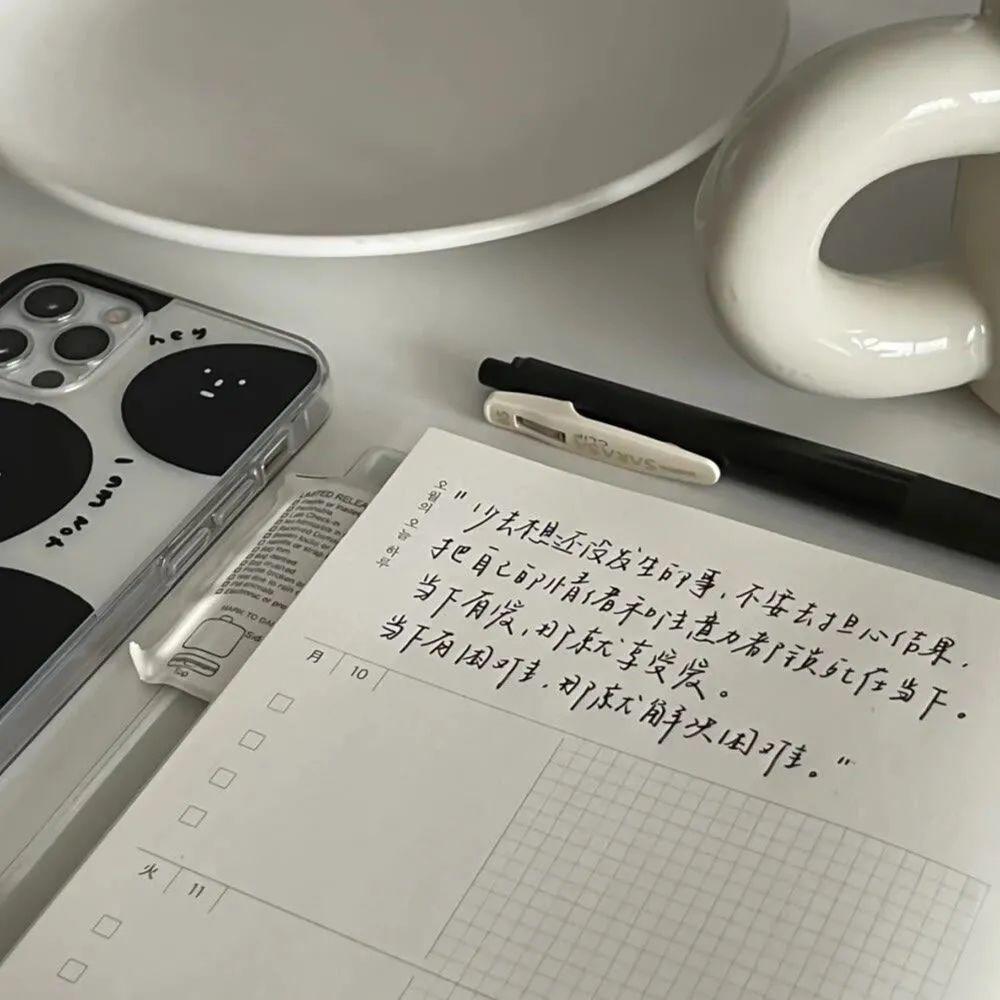 hey
I um
not
SARASA CLIP
0.5
LIMITED RELEA
MARK TO DA
Side
Top
오월의 오늘 하루
"少去想还没发生的事,不要去担心结果,
把自己的情绪和注意力都锁死在当下。
当下有爱,那就享受爱。
当下有困难,那就解决困难。"
月 10
火 11